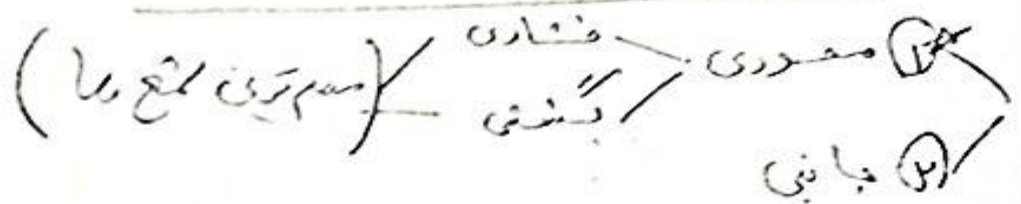 ① محوری فشاری
کششی (مهم ترین کشش ها)
② جانبی